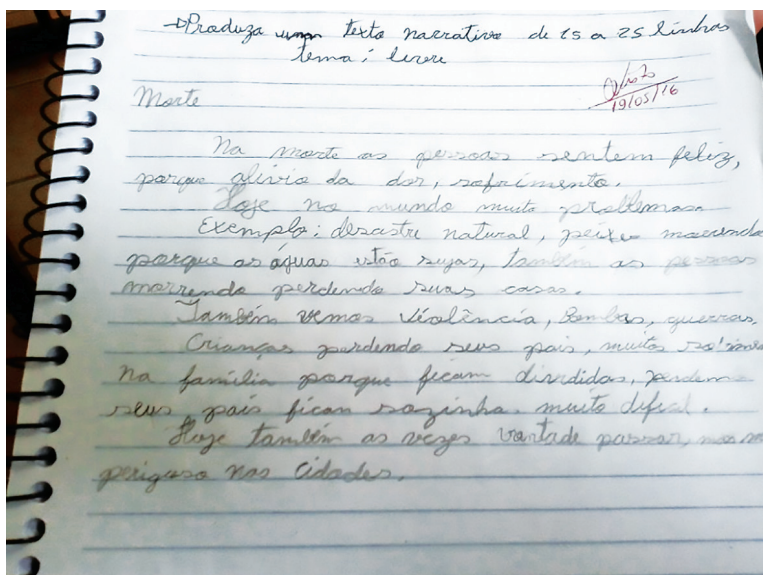 →Produza um texto narrativo de 15 a 25 linhas
tema: livre
Visto
19/05/16
Morte
Na morte as pessoas sentem feliz,
porque alivio da dor, sofrimento.
Hoje no mundo muito problemas.
Exemplo: desastre natural, peixe morrendo
porque as águas estão sujas, também as pessoas
morrendo perdendo suas casas.
Também vemos violência, Bombas, guerras,
Crianças perdendo seus pais, muitos
na família porque ficam divididas, perdem
seus pais ficam sozinha. muito difical.
Hoje também as vezes vontade passear, mas
perigoso nas cidades.